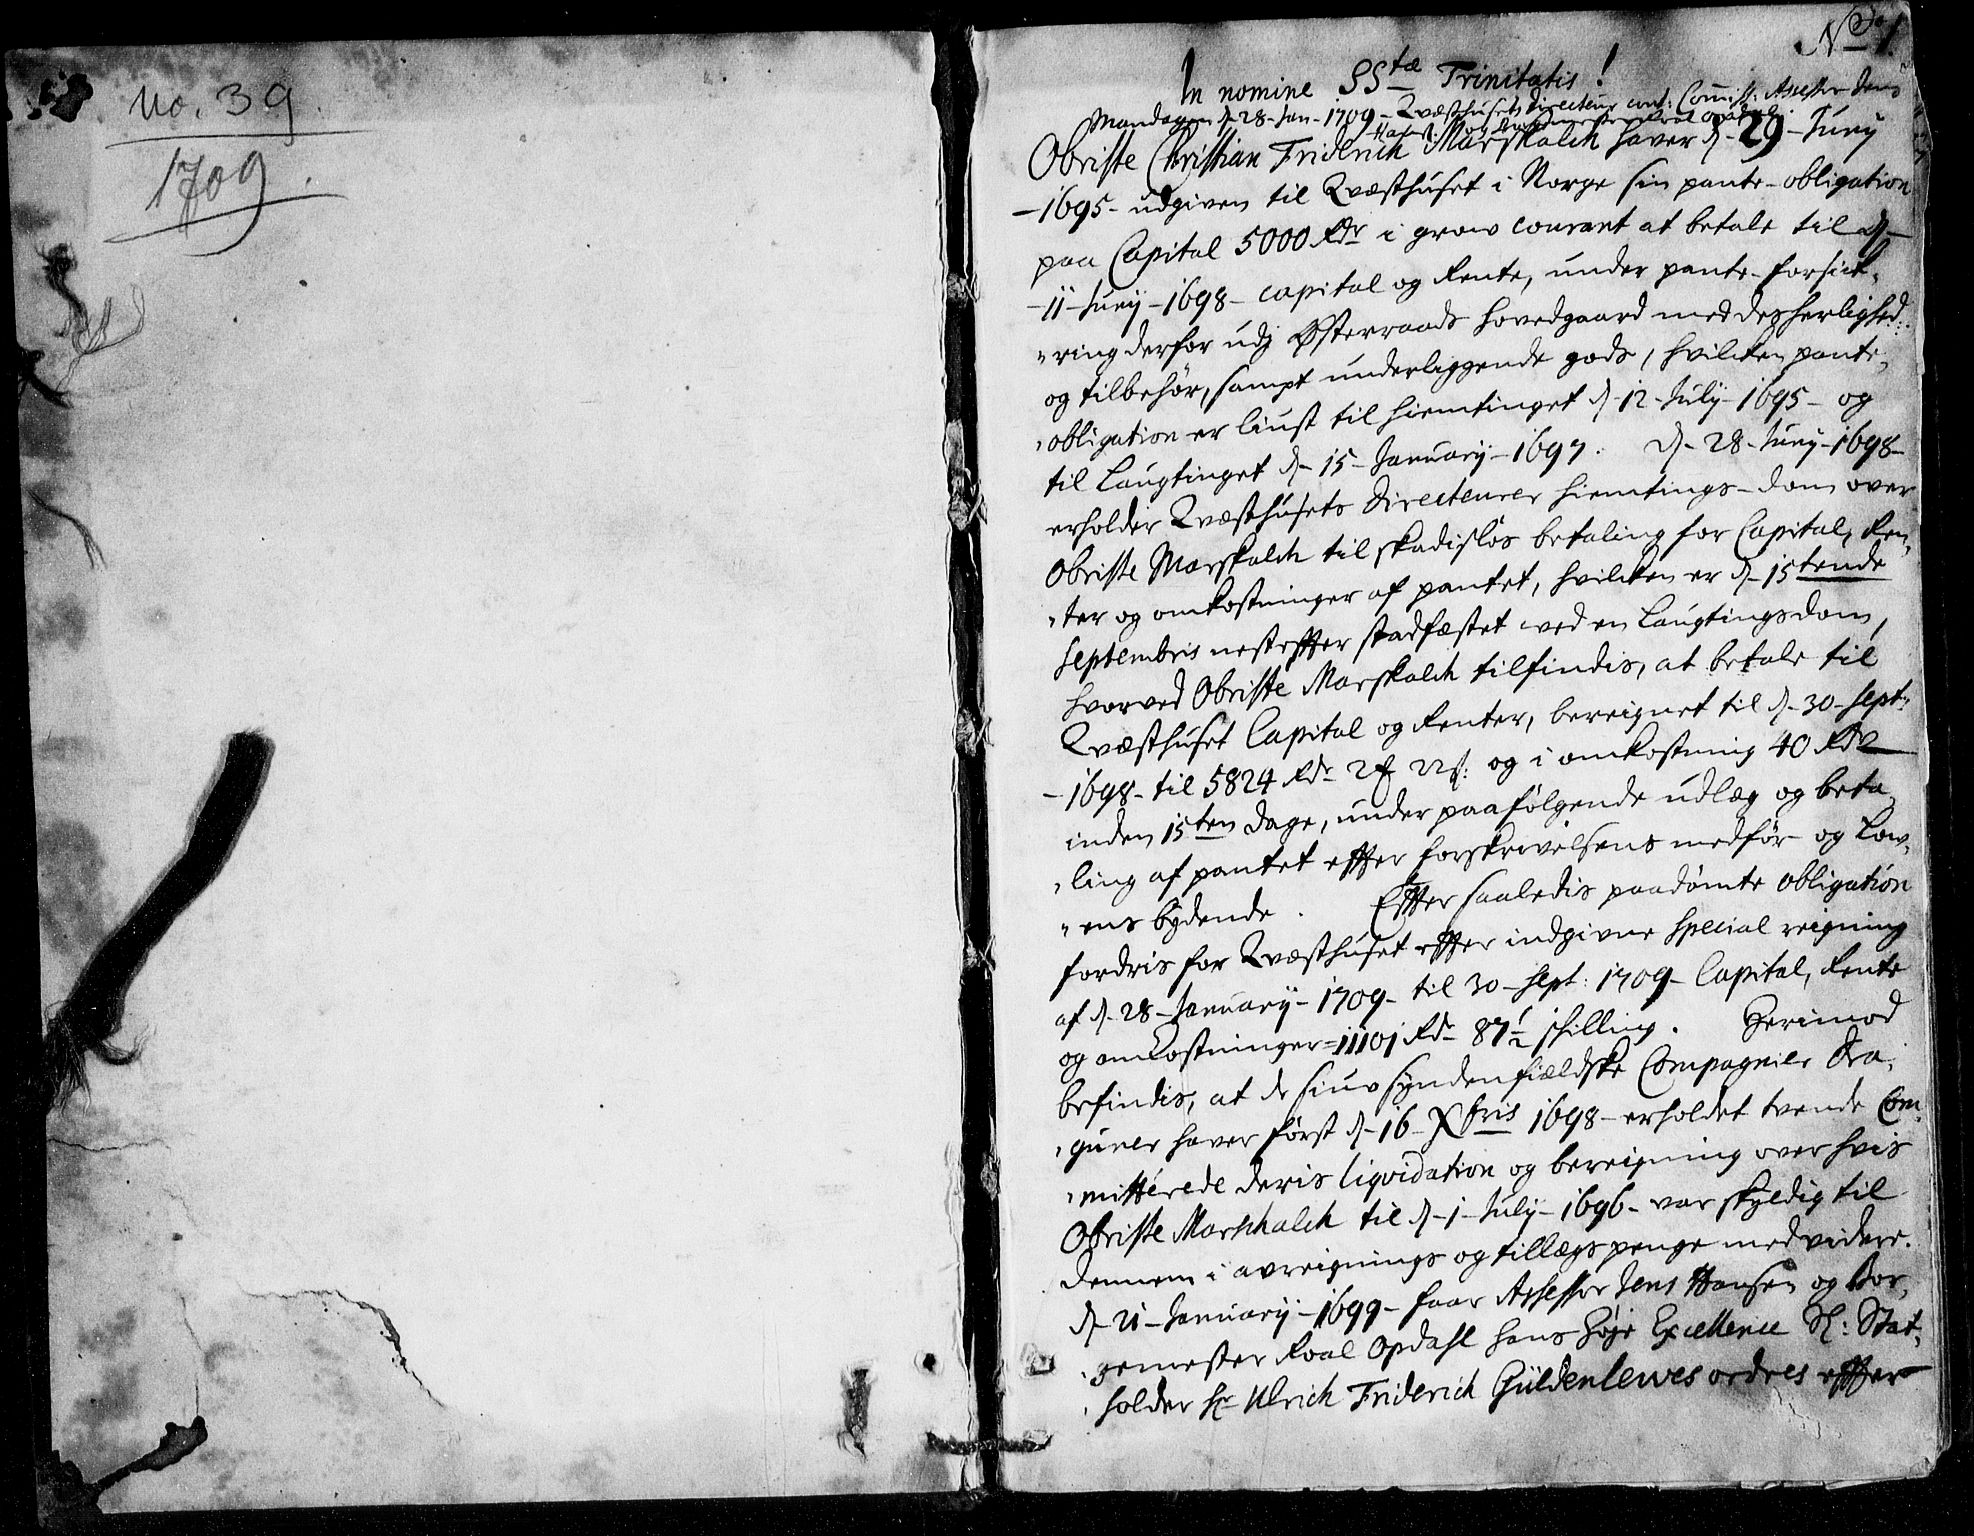 No. 39.
1709.
No 1
In nomine SStæ Trinitatis!
Mandagen d. 28 Jan. 1709 Qvæsthusets Directeur cont: Commiss: Assessor Jens
Hans: og Borgemester Roal Opdahl
Obriste Christian Friderich Marskalck haver d. 29 Juny
- 1695 - udgiven til Qvæsthuset i Norge sin pante-obligation
paa Capital 5000 Rdr i grow courant at betale til d.
- 11 - Juny - 1698 - capital og Rente, under pante-forsick-
"ring derfor udj Østerraads hovedgaard med des herlighed:
og tilbehør, sampt underliggende gods, hvilcken pante-
"obligation er liust til hiemtinget d. 12 July 1695 - og
til Laugtinget d. 15 January - 1697. d. 28 Juny 1698 -
erholder Qvæsthusets Directeurer hiemtings-dom over
Obriste Marskalck til skadisløs betaling for Capital, Ren-
"ter og omkostninger af pantet, hvilcken er d. 15tende
Septembris nestefter stadfæstet ved en Laugtingsdom,
hvorved Obriste Marskalck tilfindis, at betale til
Qvæsthuset Capital og Renter, bereignet til d. 30 Sept:
- 1698 - til 5824 Rdr 2 22s: og i omkostning 40 Rdr
inden 15ten dage, under paafølgende udlæg og beta-
"ling af pantet efter forskrivelsens medfør og Low-
"ens bydende. Efter saaledis paadømte obligation
fordris for Qvæsthuset efter indgivne special reigning
af d. 28 January - 1709 - til 30 Sept: 1709 - Capital, Rente
og omkostninger = 11101 Rdr 87½ skilling. Herimod
befindis, at de siuv syndenfieldske Compagnier Dra-
"guner haver først d. 16 Xbris 1698 - erholdet tvende Com-
"mitterede deris liqvidation og bereigning over hvis
Obriste Marskhalck til d. 1 July - 1696 - var skyldig til
dennem i avreignings og tillægs penge med videre.
d. 21 January - 1699 - faar Assessor Jens Hansen og Bor-
"gemester Roal Opdahl hans høje Excellence Sl: Stat-
"holder Hr Ulrich Friderich Güldenlewes ordres efter